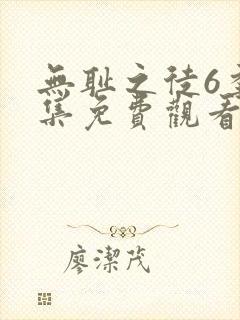 無恥之徒6
集免費觀看
廖潔茂